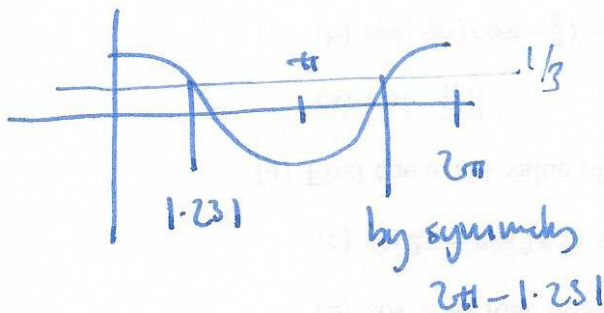 π
1/3
2π
1.231
by symmetry
2π - 1.231